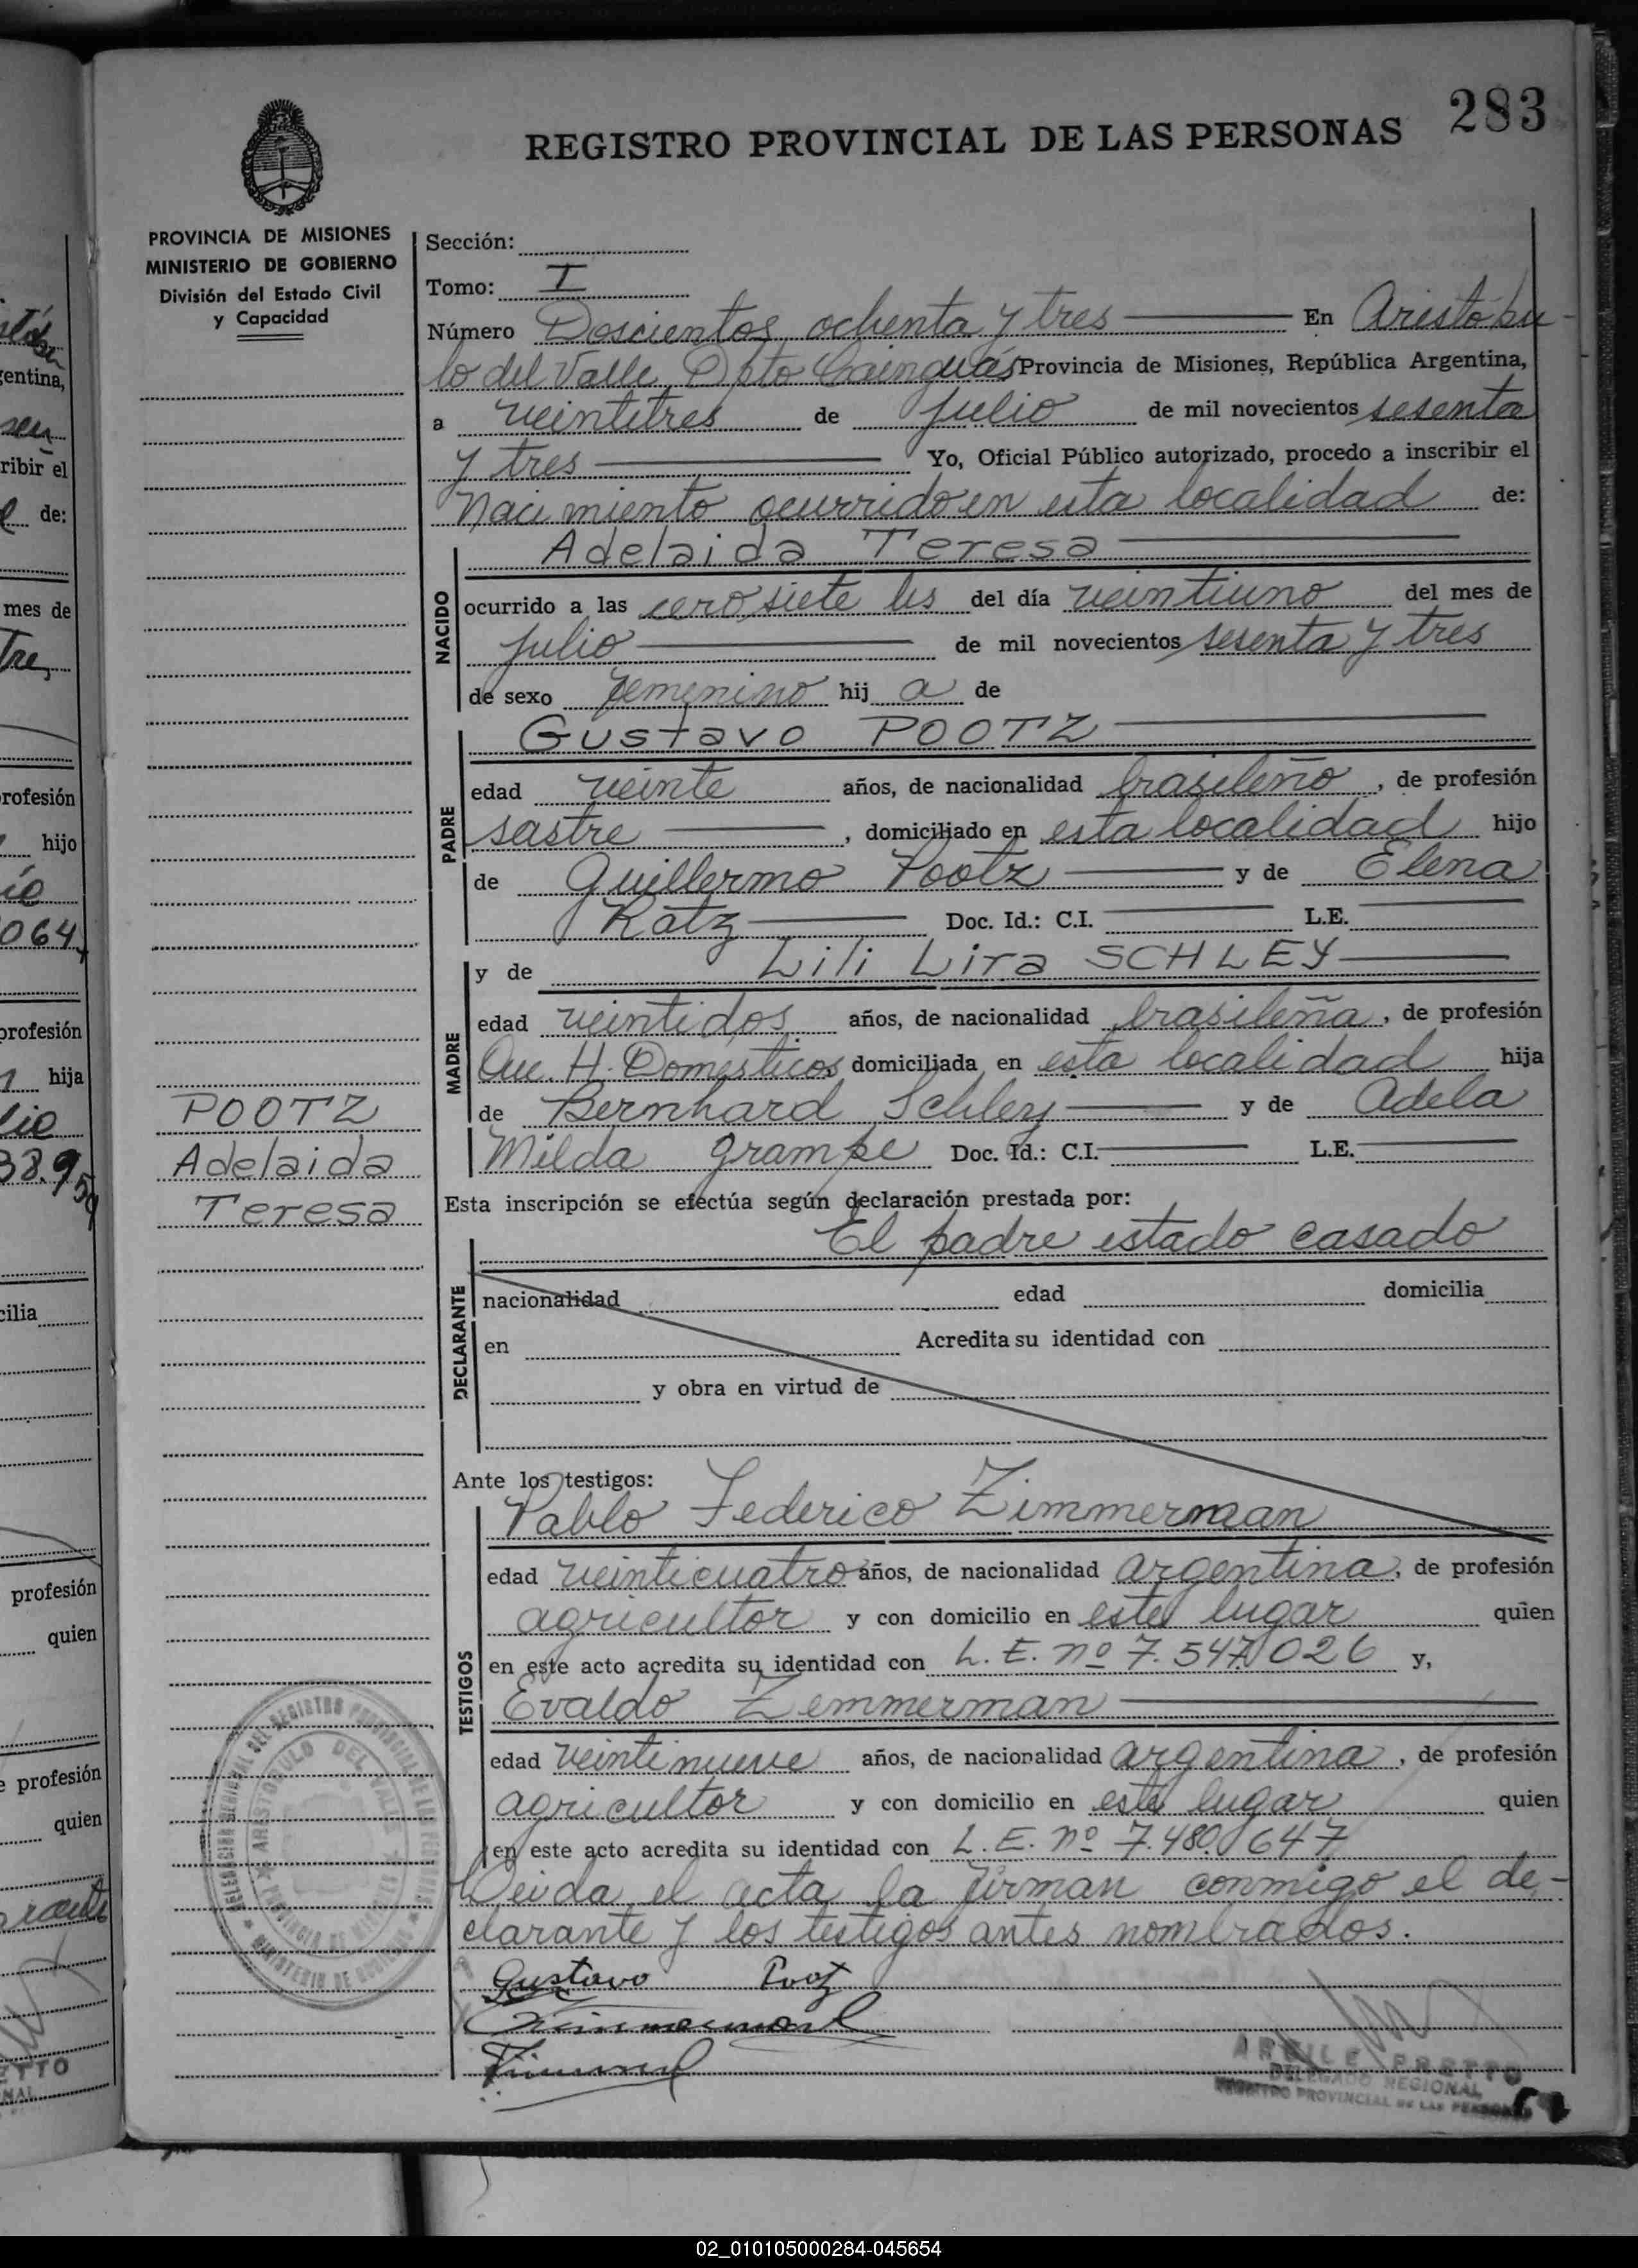 283
REGISTRO PROVINCIAL DE LAS PERSONAS
PROVINCIA DE MISIONES
MINISTERIO DE GOBIERNO
División del Estado Civil
y Capacidad
Sección:
Tomo: I
Número Doscientos ochenta y tres En Aristóbu-
lo del Valle, Dpto Cainguás Provincia de Misiones, República Argentina,
a veintitres de julio de mil novecientos sesenta
y tres Yo, Oficial Público autorizado, procedo a inscribir el
Nacimiento ocurrido en esta localidad de:
NACIDO
Adelaida Teresa
ocurrido a las cero siete hs del día veintiuno del mes de
julio de mil novecientos sesenta y tres
de sexo femenino hij a de
PADRE
Gustavo POOTZ
edad veinte años, de nacionalidad brasileño, de profesión
sastre, domiciliado en esta localidad hijo
de Guillermo Pootz y de Elena
Ratz Doc. Id.: C.I. L.E.
MADRE
y de Lili Lira SCHLEY
edad veintidos años, de nacionalidad brasileña, de profesión
Que. H. Domesticos domiciliada en esta localidad hija
de Bernhard Schley y de Adela
Milda Grampe Doc. Id.: C.I. L.E.
POOTZ
Adelaida
Teresa
Esta inscripción se efectúa según declaración prestada por:
El padre estado casado
DECLARANTE
nacionalidad edad domicilia
en Acredita su identidad con
y obra en virtud de
Ante los testigos:
TESTIGOS
Pablo Federico Zimmerman
edad veinticuatro años, de nacionalidad argentina, de profesión
agricultor y con domicilio en este lugar quien
en este acto acredita su identidad con L. E. nº 7.547.026 y,
Evaldo Zemmerman
edad veintinueve años, de nacionalidad argentina, de profesión
agricultor y con domicilio en este lugar quien
en este acto acredita su identidad con L. E. nº 7.480.647
Leida el acta la firman conmigo el de-
clarante y los testigos antes nombrados.
Gustavo Pootz
DELEGADO REGIONAL
REGISTRO PROVINCIAL DE LAS PERSONAS
ARISTOBULO DEL VALLE
PROVINCIA DE MISIONES
MINISTERIO DE GOBIERNO
entina,
ribir el
de:
mes de
profesión
hijo
064
profesión
hija
cilia
profesión
quien
profesión
quien
02_010105000284-045654